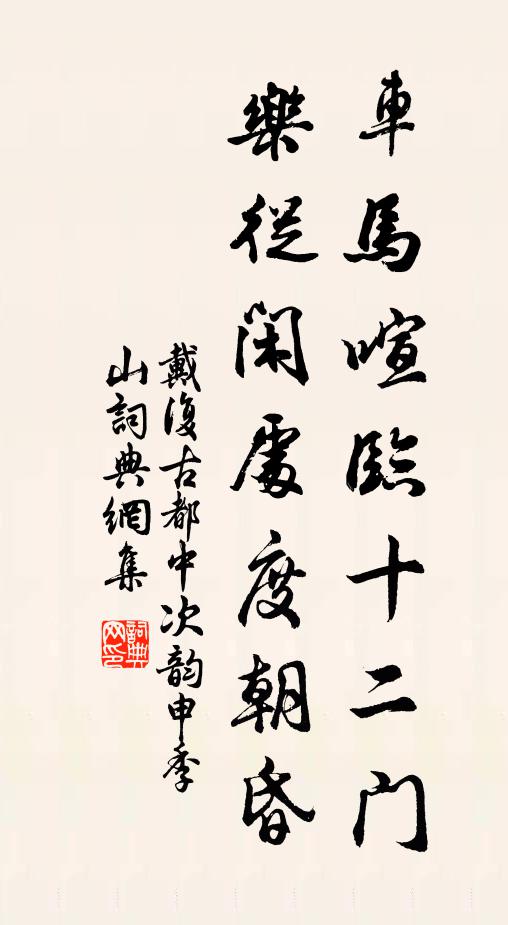 車馬喧臨十二門
樂從閑處度朝昏
戴復古都中次韵申季
山詞典網集
詞典网印